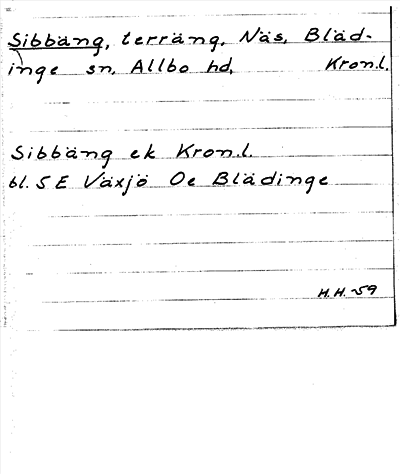 Sibbäng, terräng, Näs, Bläd-
inge sn, Allbo hd, Kron.l.
Sibbäng ek Kron.l.
bl. 5 E Växjö Oe Blädinge
H.H. -59